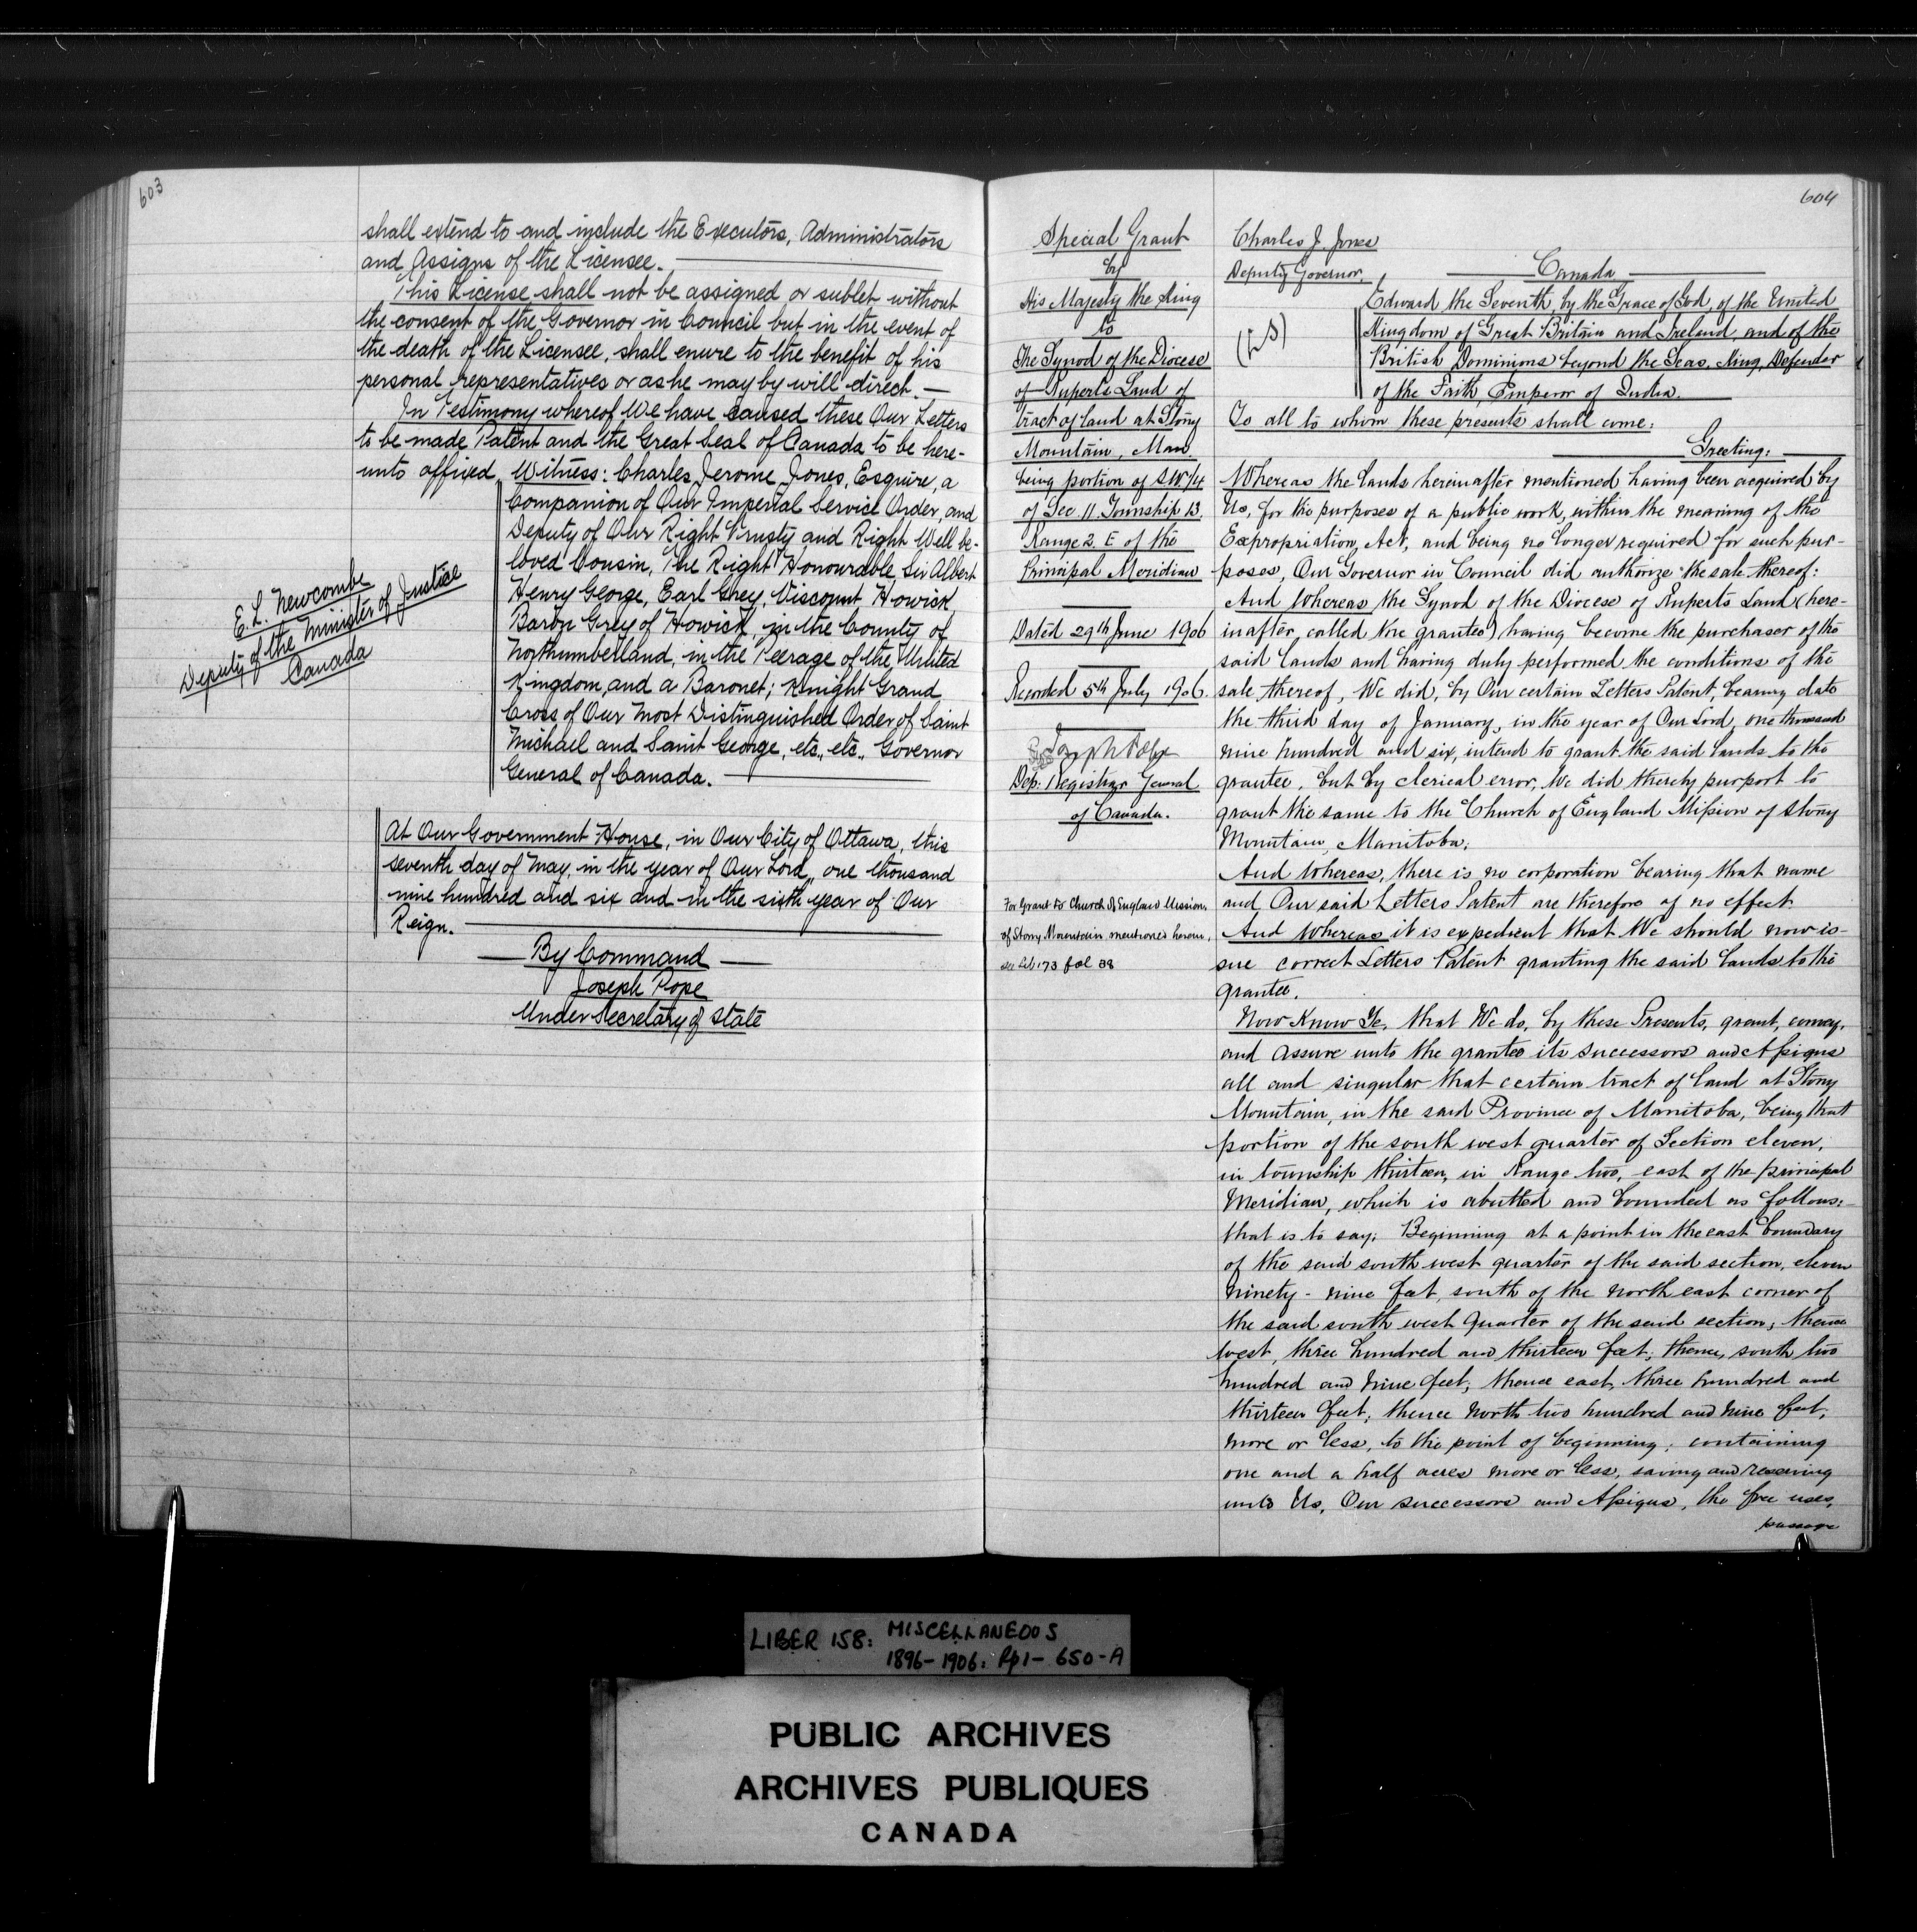 603
shall extend to and include the Executors, Administrators
and Assigns of the Licensee.
This License shall not be assigned or sublet without
the consent of the Governor in Council but in the event of
the death of the Licensee, shall enure to the benefit of his
personal representatives or as he may by will direct.
In Testimony whereof We have caused these Our Letters
to be made Patent and the Great Seal of Canada to be here-
unto affixed. Witness: Charles Jerome Jones, Esquire, a
Companion of Our Imperial Service Order, and
Deputy of Our Right Trusty and Right Well be-
loved Cousin, The Right Honourable Sir Albert
Henry George, Earl Grey, Viscount Howick,
Baron Grey of Howick, in the County of
Northumberland, in the Peerage of the United
Kingdom, and a Baronet; Knight Grand
Cross of Our Most Distinguished Order of Saint
Michael and Saint George, etc., etc., Governor
General of Canada.
E. L. Newcombe
Deputy of the Minister of Justice
Canada
At Our Government House, in Our City of Ottawa, this
seventh day of May, in the year of Our Lord, one thousand
nine hundred and six and in the sixth year of Our
Reign.
By Command
Joseph Pope
Under Secretary of State
604
Special Grant
by
His Majesty the King
to
The Synod of the Diocese
of Ruperts Land of
tract of land at Stony
Mountain, Man.
being portion of S.W. 1/4
of Sec. 11. Township 13.
Range 2. E of the
Principal Meridian
Dated 29th June 1906
Recorded 5th July 1906.
Joseph Pope
Dep: Registrar General
of Canada.
For Grant to Church of England Mission,
of Stony Mountain mentioned herein,
see Lib 173 fol 38
Charles J. Jones
Deputy Governor.
Canada
(LS)
Edward the Seventh, by the Grace of God, of the United
Kingdom of Great Britain and Ireland, and of the
British Dominions beyond the Seas, King, Defender
of the Faith, Emperor of India.
To all to whom these presents shall come:
Greeting:
Whereas the lands hereinafter mentioned having been acquired by
Us, for the purposes of a public work, within the meaning of the
Expropriation Act, and being no longer required for such pur-
poses, Our Governor in Council did authorize the sale thereof:
And Whereas the Synod of the Diocese of Ruperts Land (here-
inafter called the grantee) having become the purchaser of the
said lands and having duly performed the conditions of the
sale thereof, We did, by Our certain Letters Patent, bearing date
the third day of January, in the year of Our Lord, one thousand
nine hundred and six, intend to grant the said lands to the
grantee, but by clerical error, We did thereby purport to
grant the same to the Church of England Mission of Stony
Mountain, Manitoba;
And Whereas, there is no corporation bearing that name
and Our said Letters Patent are therefore of no effect.
And Whereas it is expedient that We should now is-
sue correct Letters Patent granting the said lands to the
grantee.
Now Know Ye, that We do, by these Presents, grant, convey,
and assure unto the grantee its successors and Assigns
all and singular that certain tract of land at Stony
Mountain, in the said Province of Manitoba, being that
portion of the south west quarter of Section eleven,
in township thirteen, in Range two, east of the principal
Meridian, which is abutted and bounded as follows:-
that is to say: Beginning at a point in the east boundary
of the said south west quarter of the said section, eleven
ninety-nine feet, south of the north east corner of
the said south west quarter of the said section; thence
west, three hundred and thirteen feet; thence, south two
hundred and nine feet; thence east, three hundred and
thirteen feet; thence North two hundred and nine feet,
more or less, to the point of beginning; containing
one and a half acres more or less, saving and reserving
unto Us, Our successors and Assigns, the free uses,
passage
LIBER 158: MISCELLANEOUS
1896-1906: Pp 1-650-A
PUBLIC ARCHIVES
ARCHIVES PUBLIQUES
CANADA